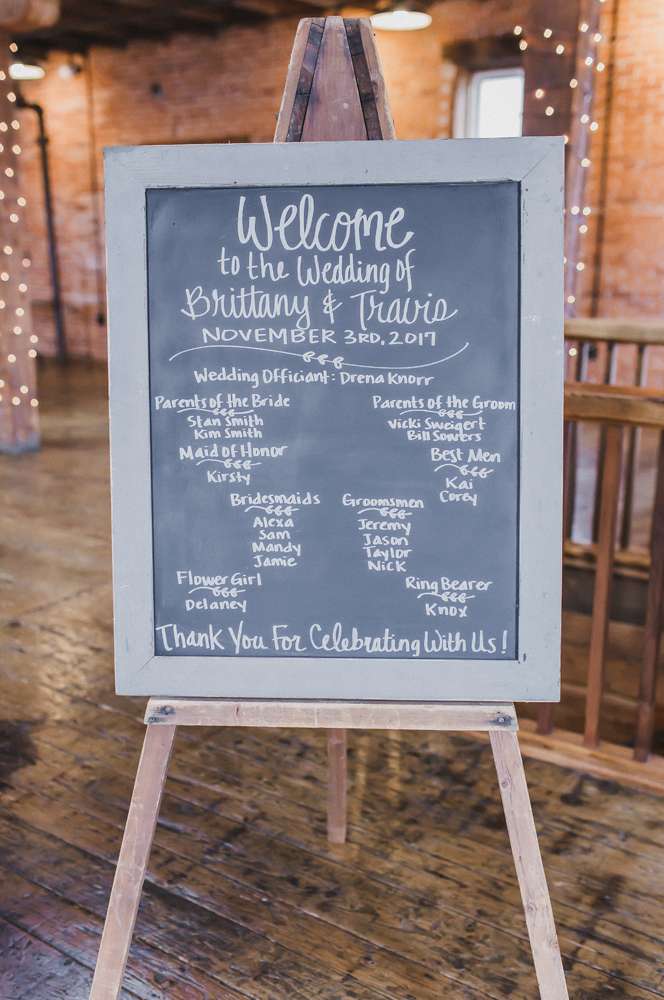 Welcome
to the Wedding of
Brittany & Travis
NOVEMBER 3RD, 2017
Wedding Officiant: Drena Knorr
Parents of the Bride
Stan Smith
Kim Smith
Parents of the Groom
Vicki Sweigert
Bill Sowers
Maid of Honor
Kirsty
Best Men
Kai
Corey
Bridesmaids
Alexa
Sam
Mandy
Jamie
Groomsmen
Jeremy
Jason
Taylor
Nick
Flower Girl
Delaney
Ring Bearer
Knox
Thank You For Celebrating With Us!